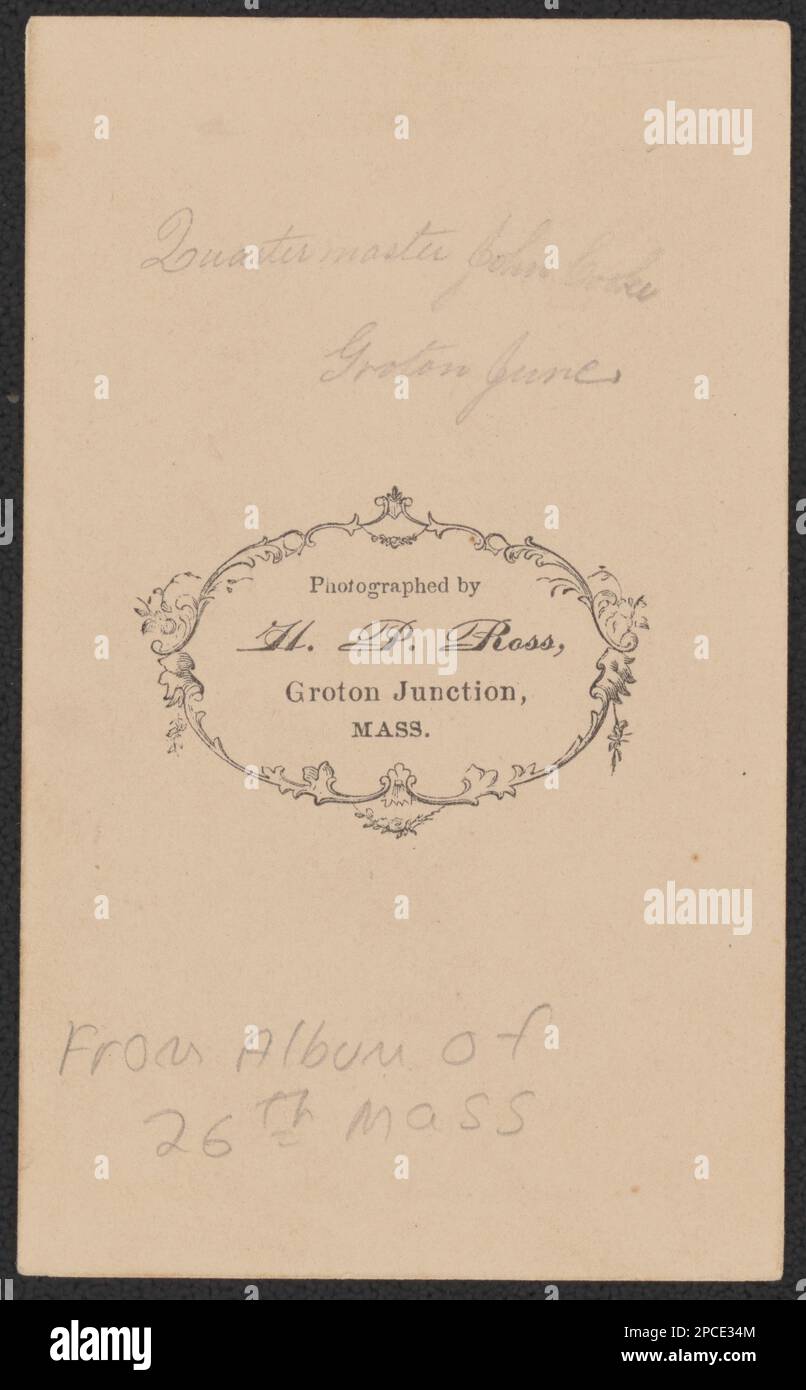 Quartermaster John
Groton June
Photographed by
H. P. Ross,
Groton Junction,
MASS.
From Album of
26th Mass
alamy
alamy
a
alamy
Image ID: 2PCE34M
www.alamy.com